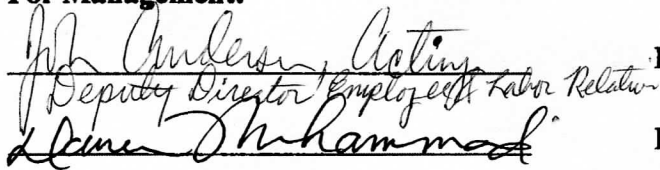 For Management:
John Anderson, Acting
Deputy Director Employee & Labor Relation
Muhammad